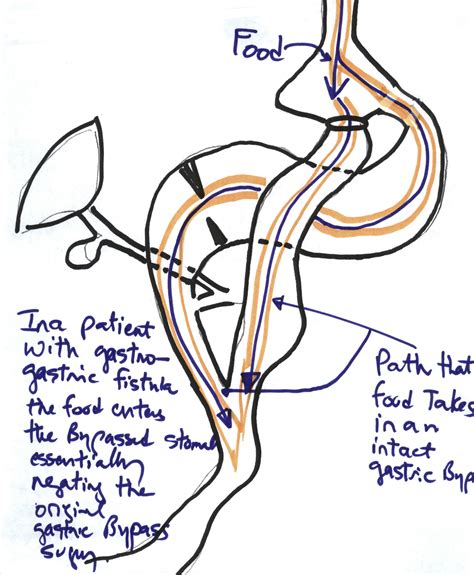 Food
In a patient
with gastro-
gastric fistula
the food enters
the Bypassed stoma
essentially
negating the
original
gastric Bypass
Path that
food Takes
in an
intact
gastric Byp